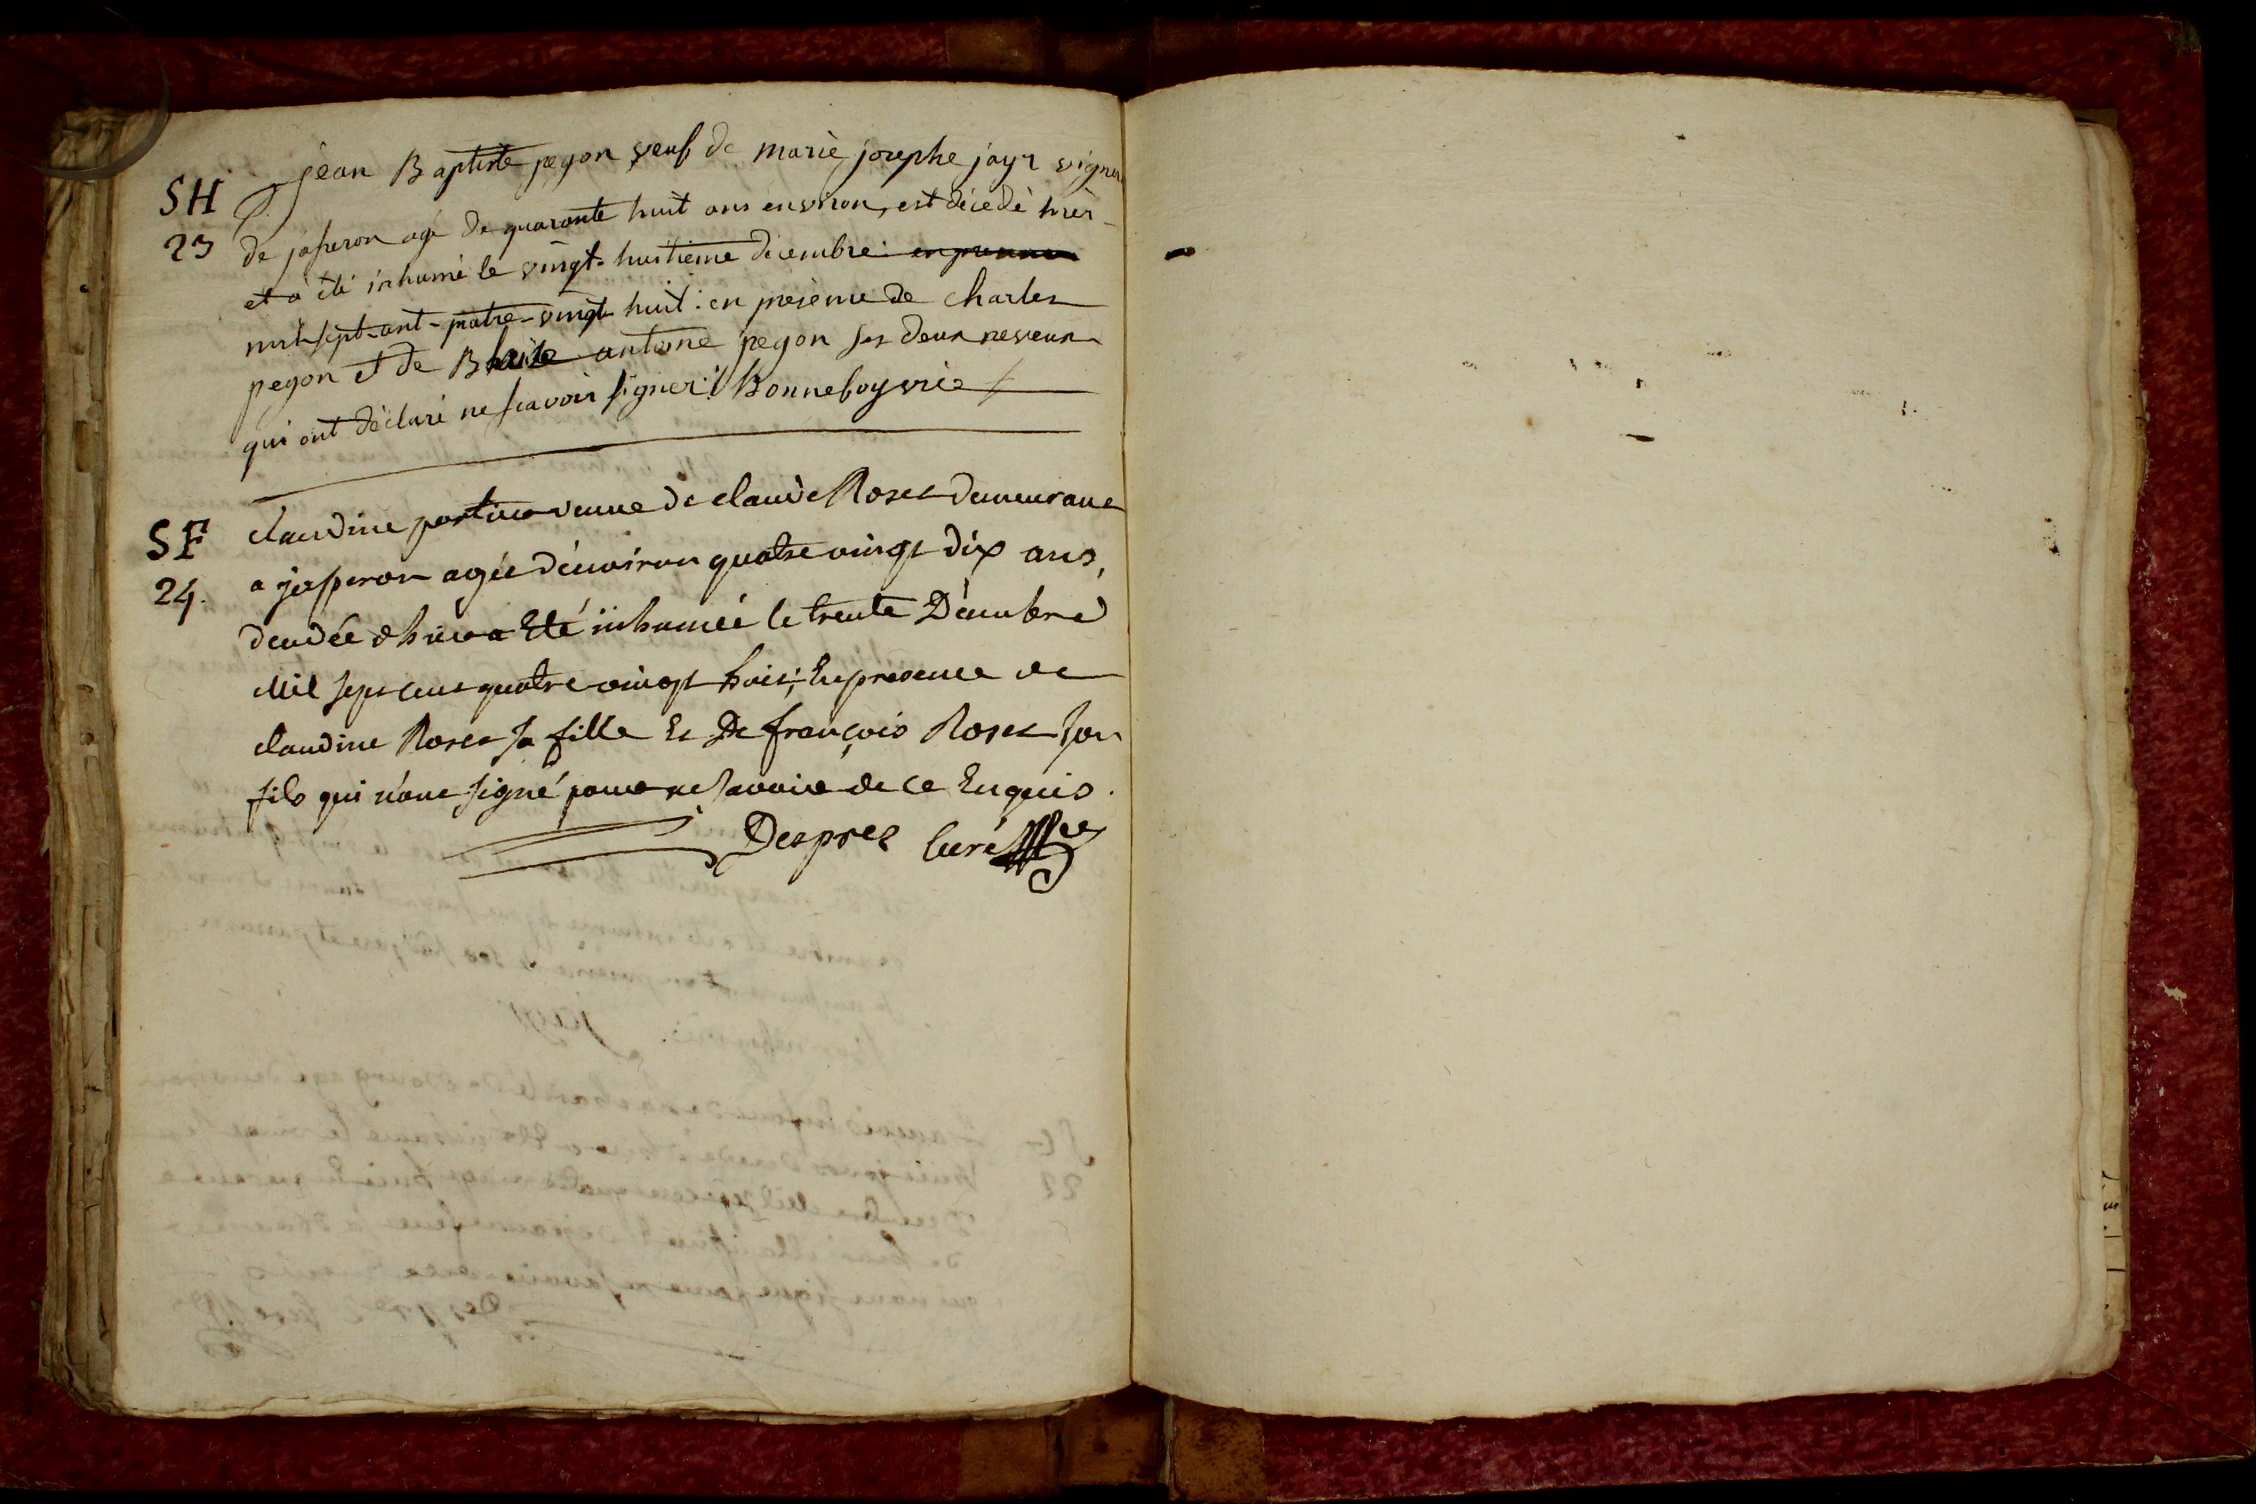 SH
23
jean Baptiste pegon veuf de marie josephe jayr vigneron
de jasseron agé de quarante huit ans environ, est décedé hier
et à été inhumé le vingt-huitième décembre
mil sept-cent-quatre-vingt huit : en présence de charles
pegon et de Blaise antoine pegon ses deux neveux
qui ont déclaré ne scavoir signer : Bonneboy vic
SF
24.
claudine veuve de claude Roset demeurant
a jasseron agée d'environ quatre vingt dix ans,
décédée d'hier a Eté inhumée le trente Décembre
Mil sept cent quatre vingt huit ; En presence de
claudine Roset sa fille Et De françois Roset son
fils qui n'ont signé pour ne savoir de ce Enquis.
Desprez Curé